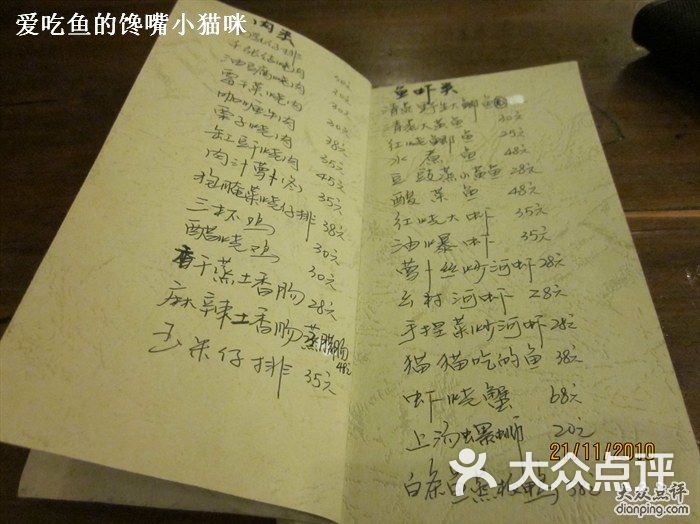 爱吃鱼的馋嘴小猫咪
肉类
油豆腐烧肉
霉干菜烧肉 30元
咖喱牛肉 30元
栗子烧肉 38元
缸豆干烧肉 35元
肉汁萝卜 45元
腌菜烧仔排 35元
三杯鸡 38元
醋烧鸡 30元
香干蒸土香肠 30元
麻辣土香肠 28元
蒸腊肠 48元
玉米仔排 35元
鱼虾类
清蒸野生大鲫鱼
清蒸大黄鱼 30元
红烧鲫鱼 25元
水煮鱼 48元
豆豉蒸小黄鱼 28元
酸菜鱼 48元
红烧大虾 35元
油爆虾 35元
萝卜丝炒河虾 28元
农村河虾 28元
手捏菜炒河虾 28元
猫猫吃的鱼 38元
虾烧蟹 68元
上汤螺蛳 20元
白条 38元
21/11/2010
大众点评
大众点评
dianping.com